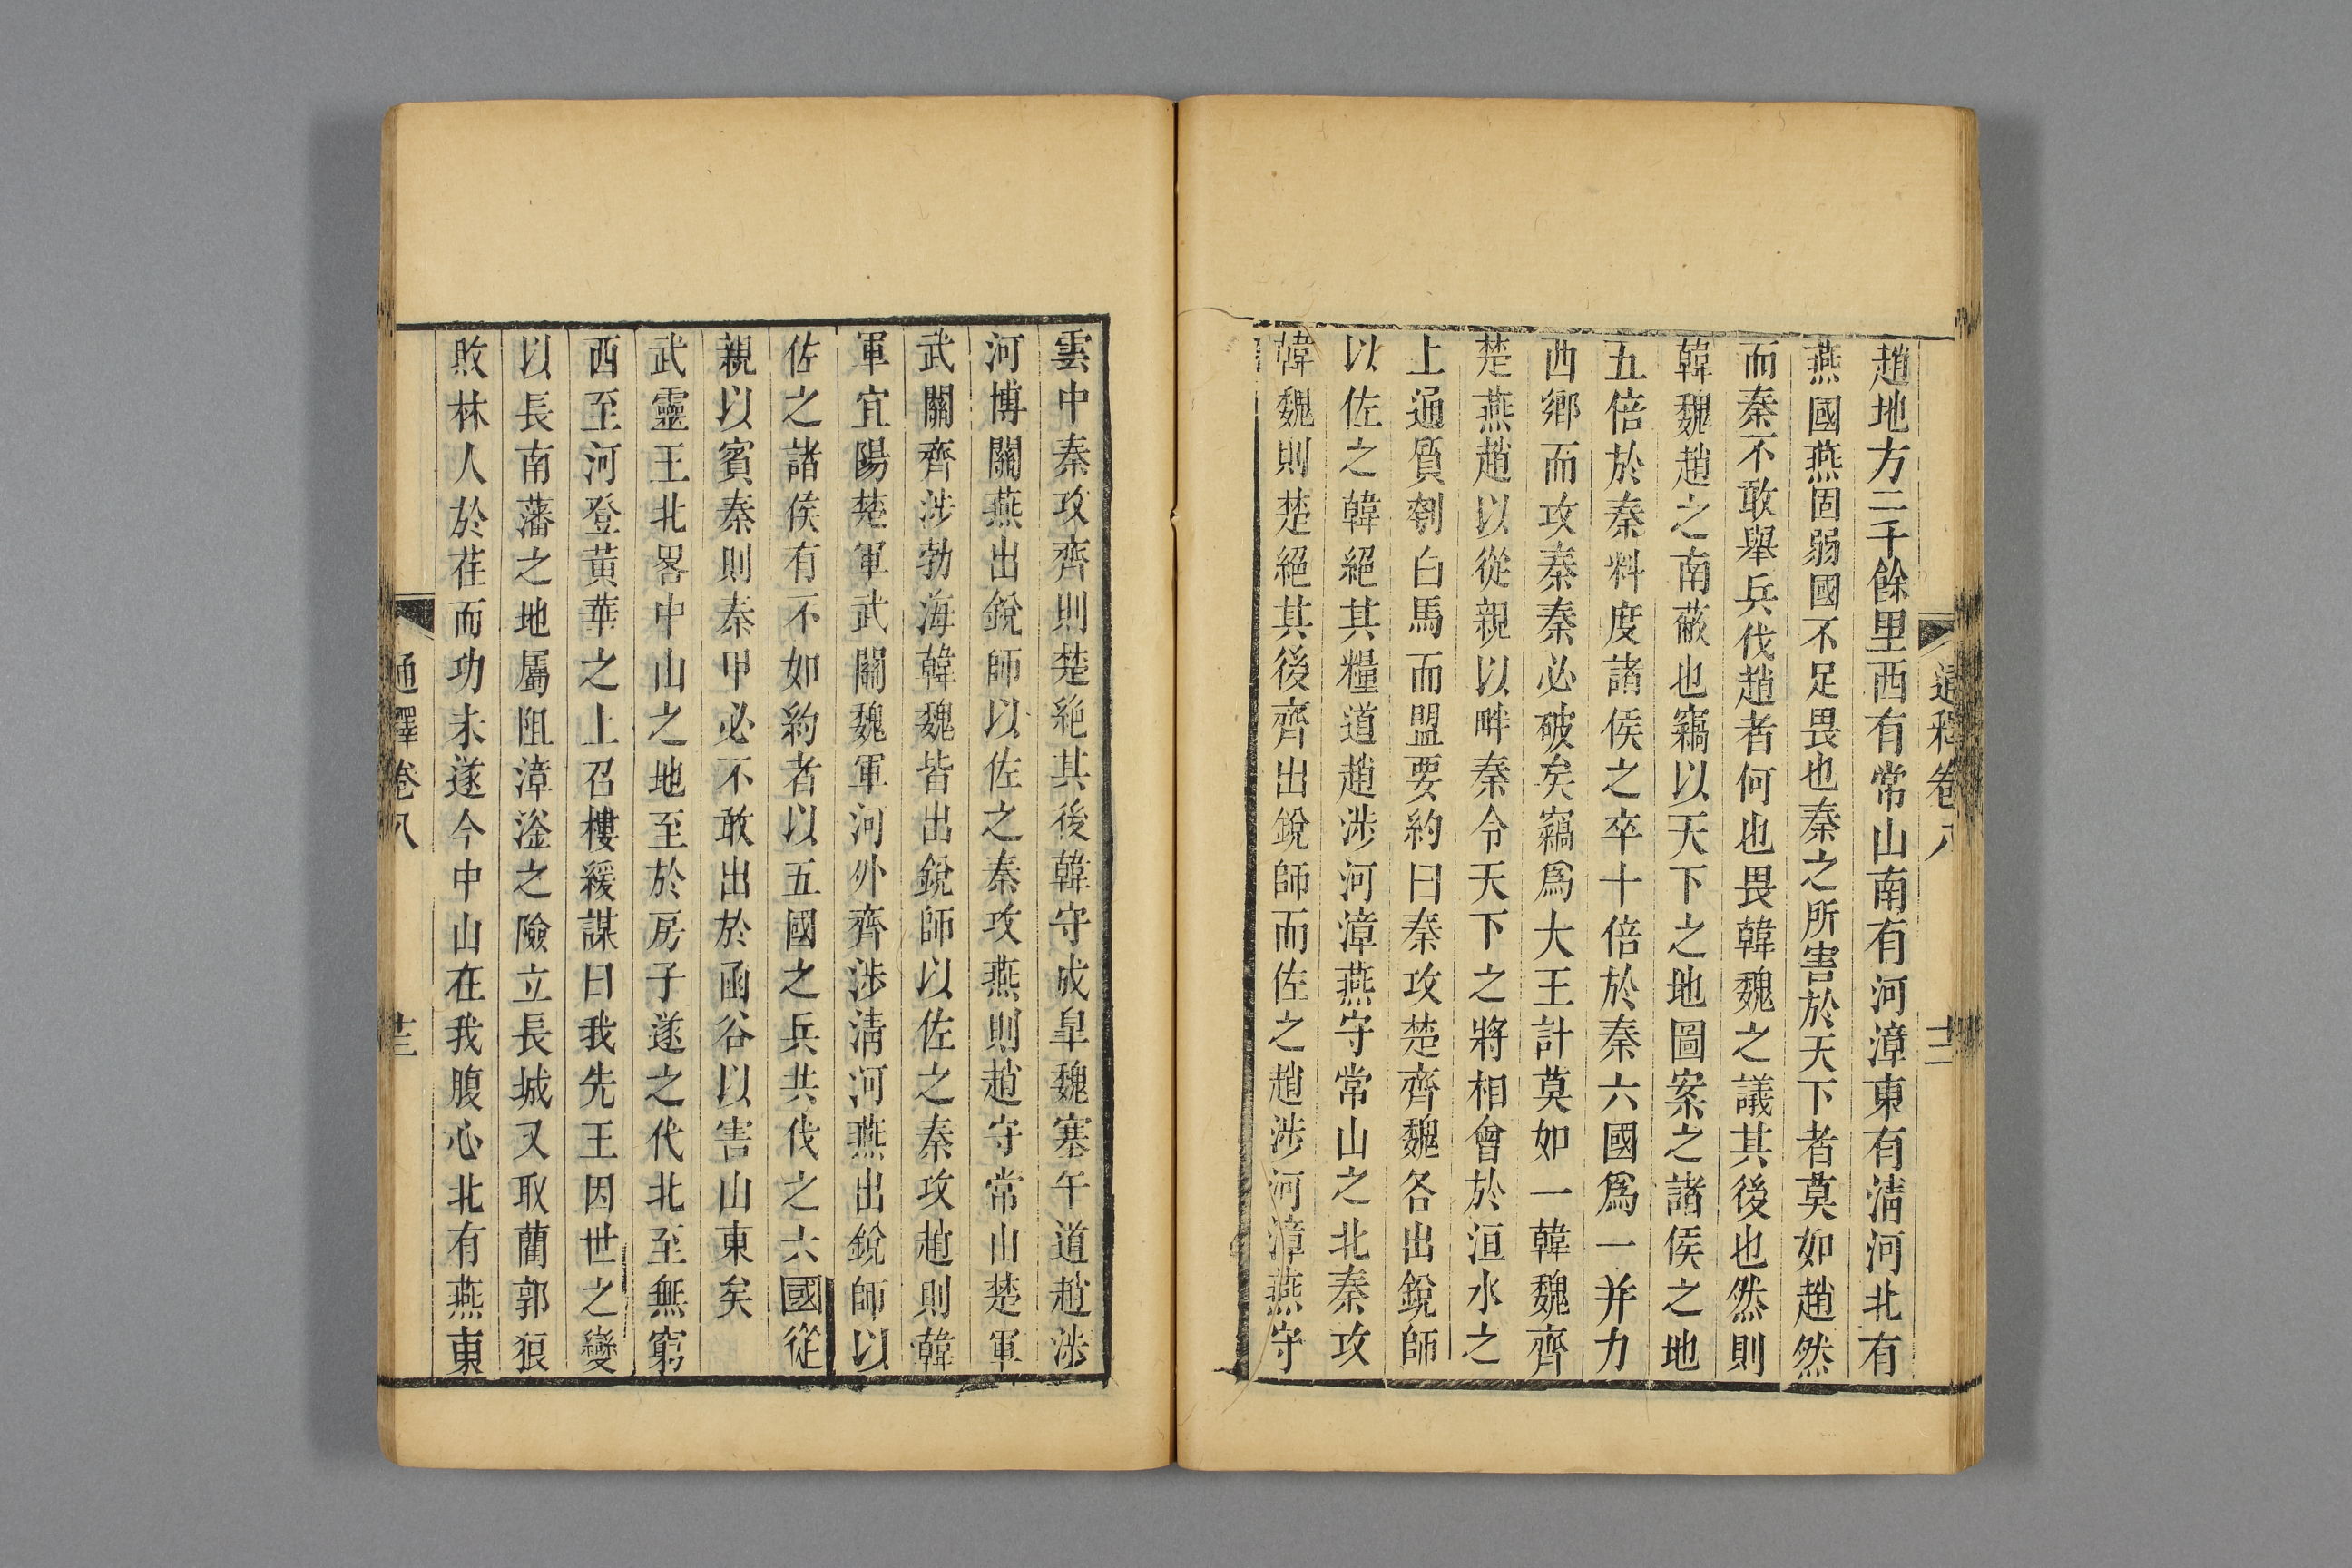 通釋卷八 十二
趙地方二千餘里西有常山南有河漳東有淸河北有
燕國燕固弱國不足畏也秦之所害於天下者莫如趙然
而秦不敢舉兵伐趙者何也畏韓魏之議其後也然則
韓魏趙之南蔽也竊以天下之地圖案之諸侯之地
五倍於秦料度諸侯之卒十倍於秦六國爲一并力
西鄕而攻秦秦必破矣竊爲大王計莫如一韓魏齊
楚燕趙以從親以畔秦令天下之將相會於洹水之
上通質刳白馬而盟要約曰秦攻楚齊魏各出銳師
以佐之韓絕其糧道趙涉河漳燕守常山之北秦攻
韓魏則楚絕其後齊出銳師而佐之趙涉河漳燕守
雲中秦攻齊則楚絕其後韓守成臯魏塞午道趙涉
河博關燕出銳師以佐之秦攻燕則趙守常山楚軍
武關齊涉勃海韓魏皆出銳師以佐之秦攻趙則韓
軍宜陽楚軍武關魏軍河外齊涉淸河燕出銳師以
佐之諸侯有不如約者以五國之兵共伐之六國從
親以賓秦則秦甲必不敢出於函谷以害山東矣
武靈王北畧中山之地至於房子遂之代北至無窮
西至河登黃華之上召樓緩謀曰我先王因世之變
以長南藩之地屬阻漳滏之險立長城又取藺郭狼
敗林人於荏而功未遂今中山在我腹心北有燕東
通釋卷八 十三